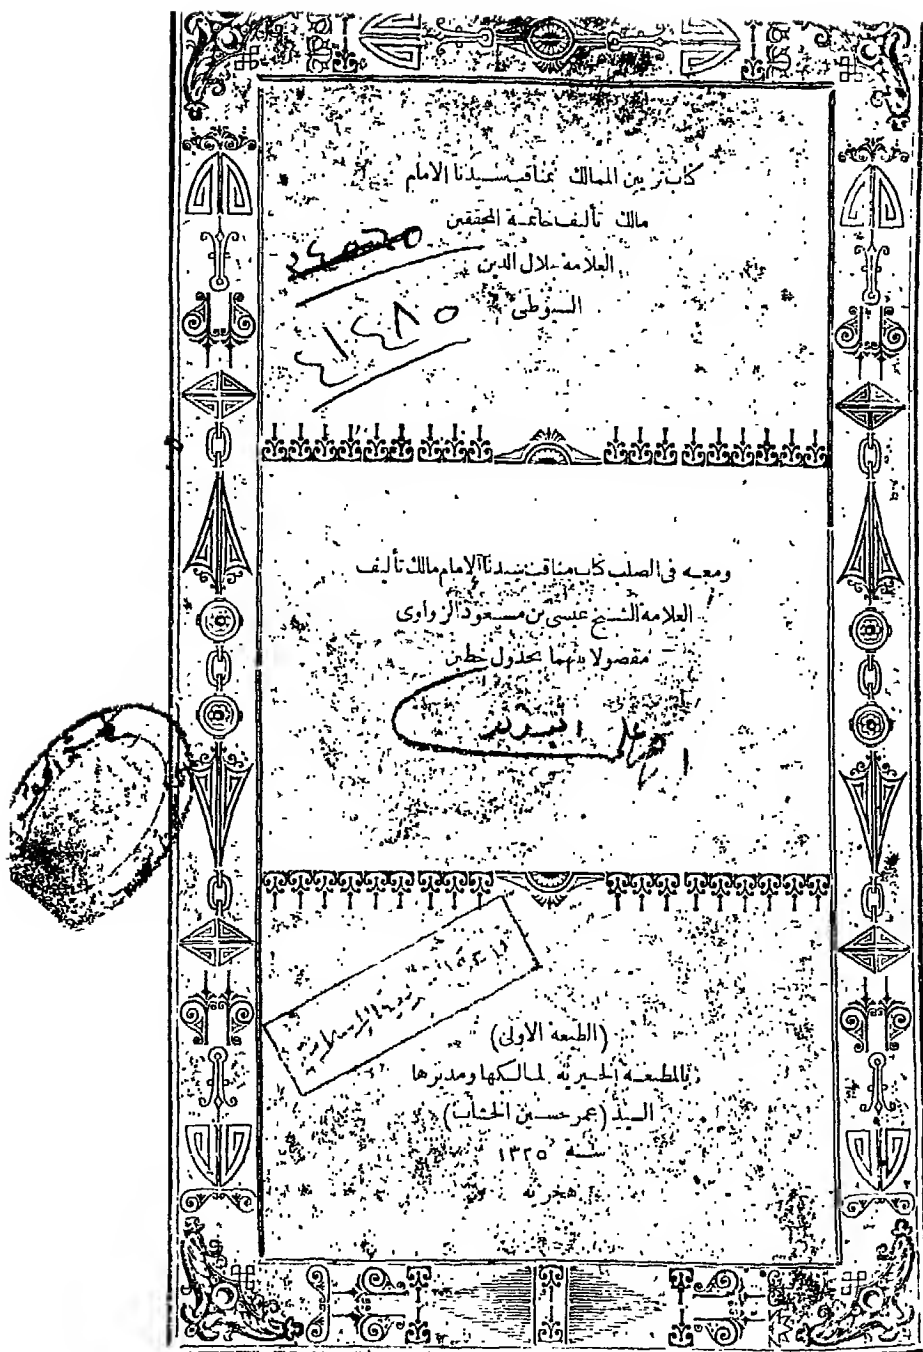 كتاب تزيين الممالك بمناقب سيدنا الامام
مالك تأليف خاتمة المحققين
العلامة جلال الدين
السيوطى
٤١٤٨٥
ومعه فى الصلب كتاب مناقب سيدنا الامام مالك تأليف
العلامة الشيخ عيسى بن مسعود الزواوى
مفصولا بينهما بجدول خطين
(الطبعة الاولى)
بالمطبعة الخيرية لمالكها ومديرها
السيد (عمر حسين الخشاب)
سنة ١٣٢٥
هجرية